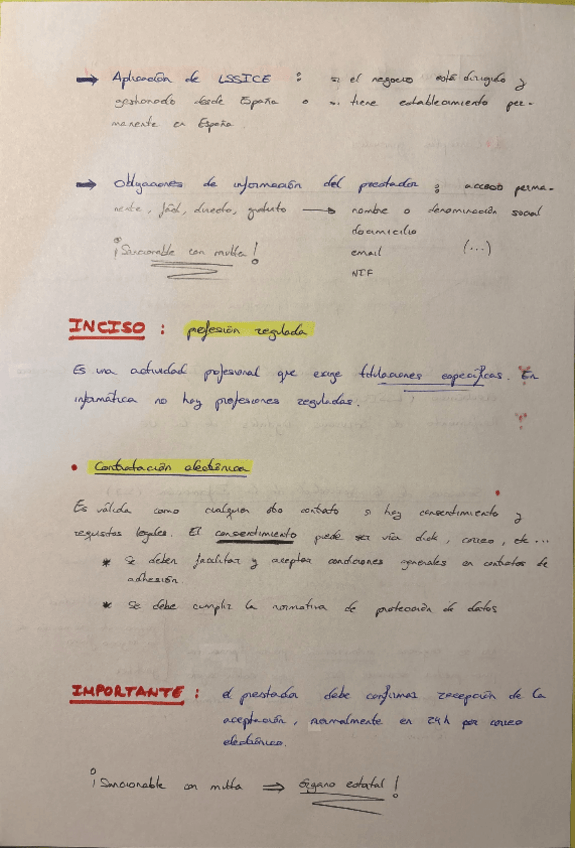 → Aplicación de LSSICE : si el negocio está dirigido y
gestionado desde España o si tiene establecimiento per-
manente en España.
→ Obligaciones de información del prestador : acceso perma-
nente, fácil, directo, gratuito → nombre o denominación social
domicilio
¡Sancionable con multa! email (...)
NIF
INCISO : profesión regulada
Es una actividad profesional que exige titulaciones específicas. En
informática no hay profesiones reguladas.
• Contratación electrónica
Es válida como cualquier otro contrato si hay consentimiento y
requisitos legales. El consentimiento puede ser vía click, correo, etc...
* Se deben facilitar y aceptar condiciones generales en contratos de
adhesión.
* Se debe cumplir la normativa de protección de datos
IMPORTANTE : el prestador debe confirmar recepción de la
aceptación, normalmente en 24h por correo
electrónico.
¡Sancionable con multa ⇒ órgano estatal!